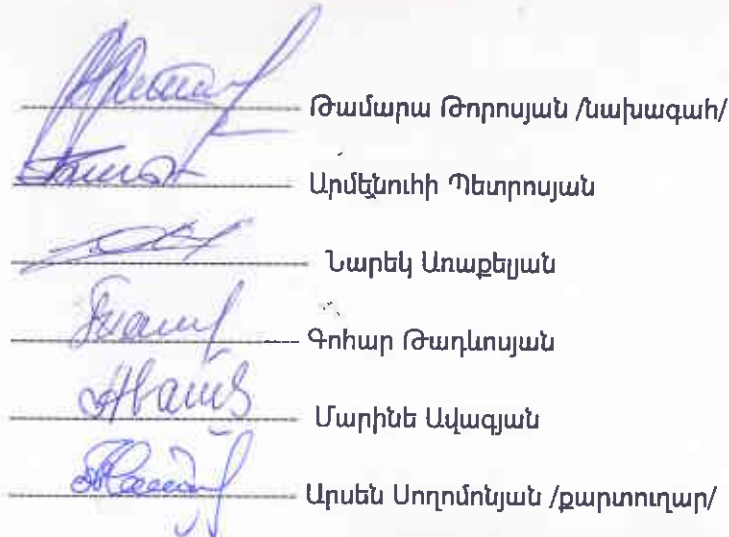 Թամարա Թորոսյան /նախագահ/
Արմենուհի Պետրոսյան
Նարեկ Առաքելյան
Գոհար Թադևոսյան
Մարինե Ավագյան
Արսեն Սողոմոնյան /քարտուղար/